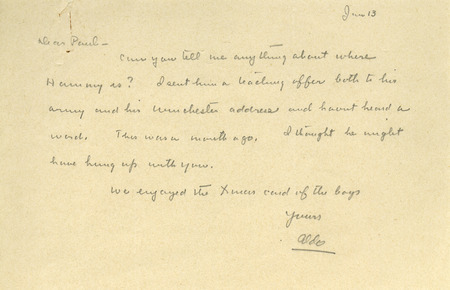 Jan 13
Dear Paul -
Can you tell me anything about where
Hammy is? I sent him a teaching offer both to his
army and his Winchester address and havnt heard a
word. This was a month ago. I thought he might
have hung up with you.
We enjoyed the Xmas card of the boys
Yours
Aldo